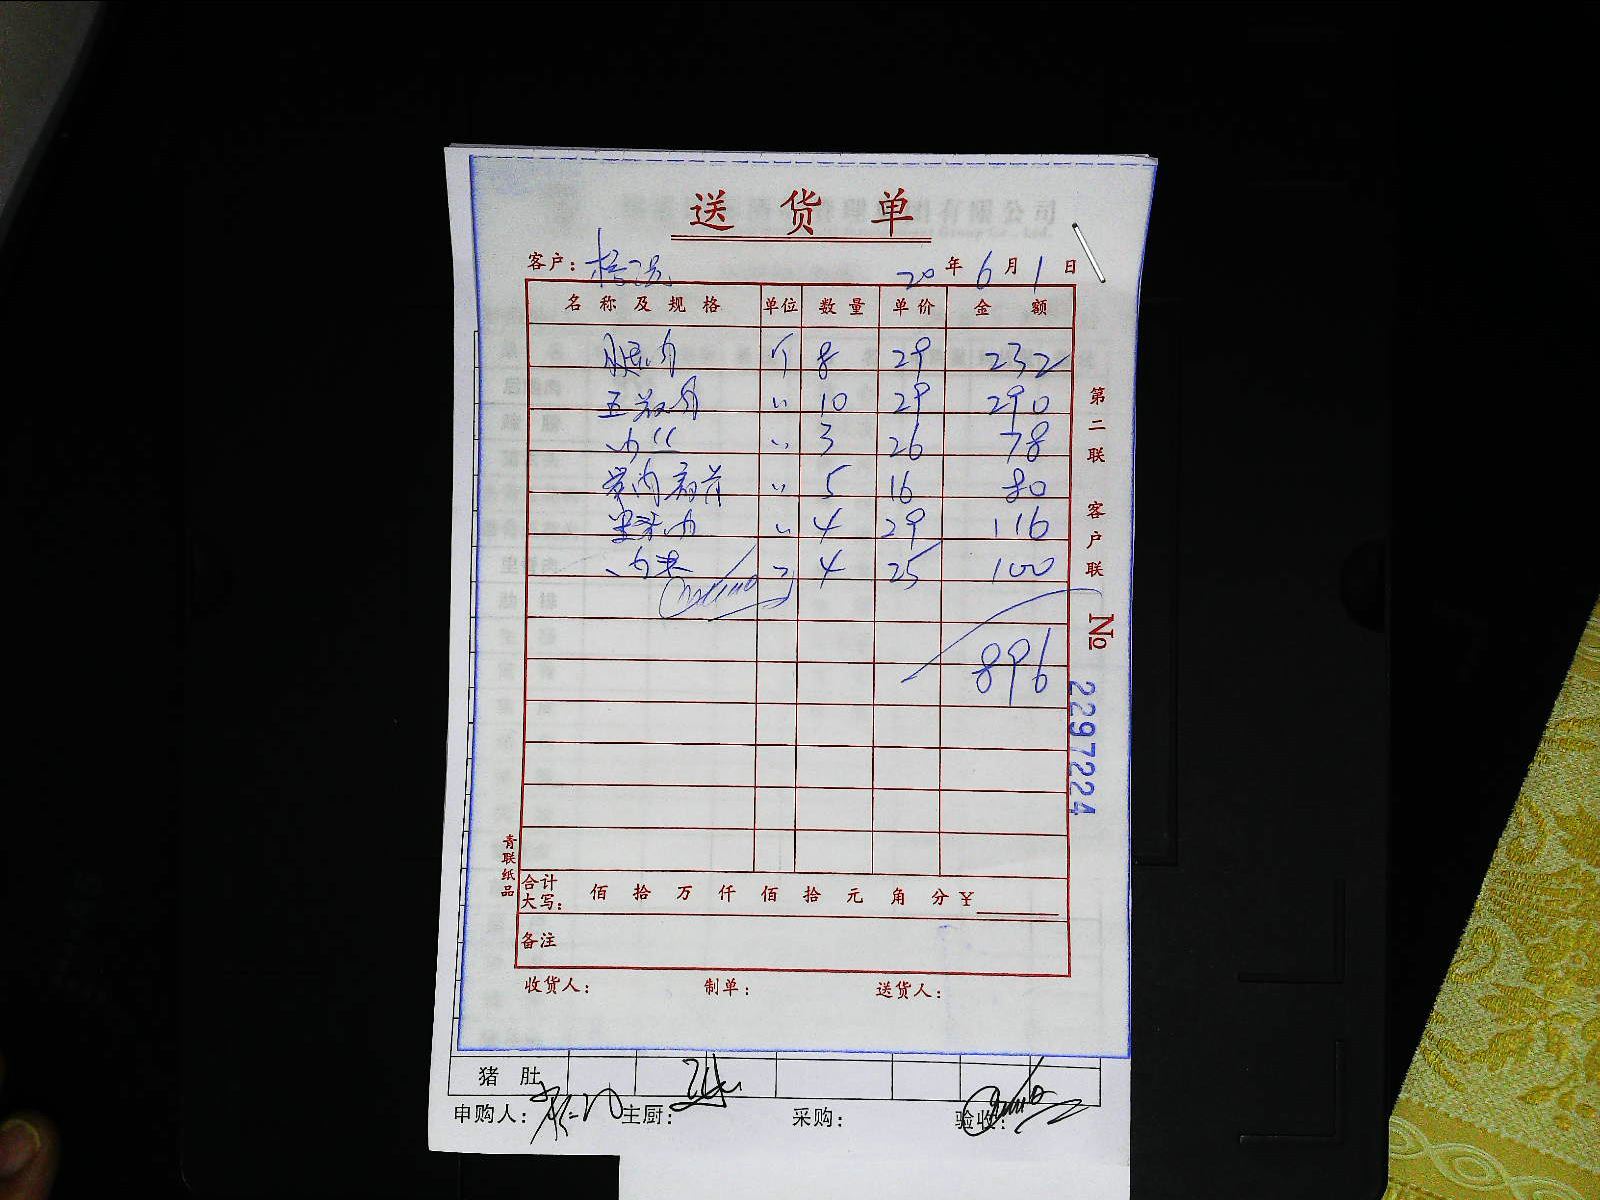 送 货 单
客户: 20 年 6 月 1 日
名 称 及 规 格 单位 数 量 单 价 金 额
腿肉 斤 8 29 232
五花肉 〃 10 29 290
肉丝 〃 3 26 78
〃 5 16 80
里脊肉 〃 4 29 116
肉末 4 25 100
896
第二联 客户联
№ 2297224
青联纸品
合计大写: 佰 拾 万 仟 佰 拾 元 角 分 ¥
备注
收货人: 制单: 送货人:
猪 肚
申购人: 主厨: 采购: 验收: